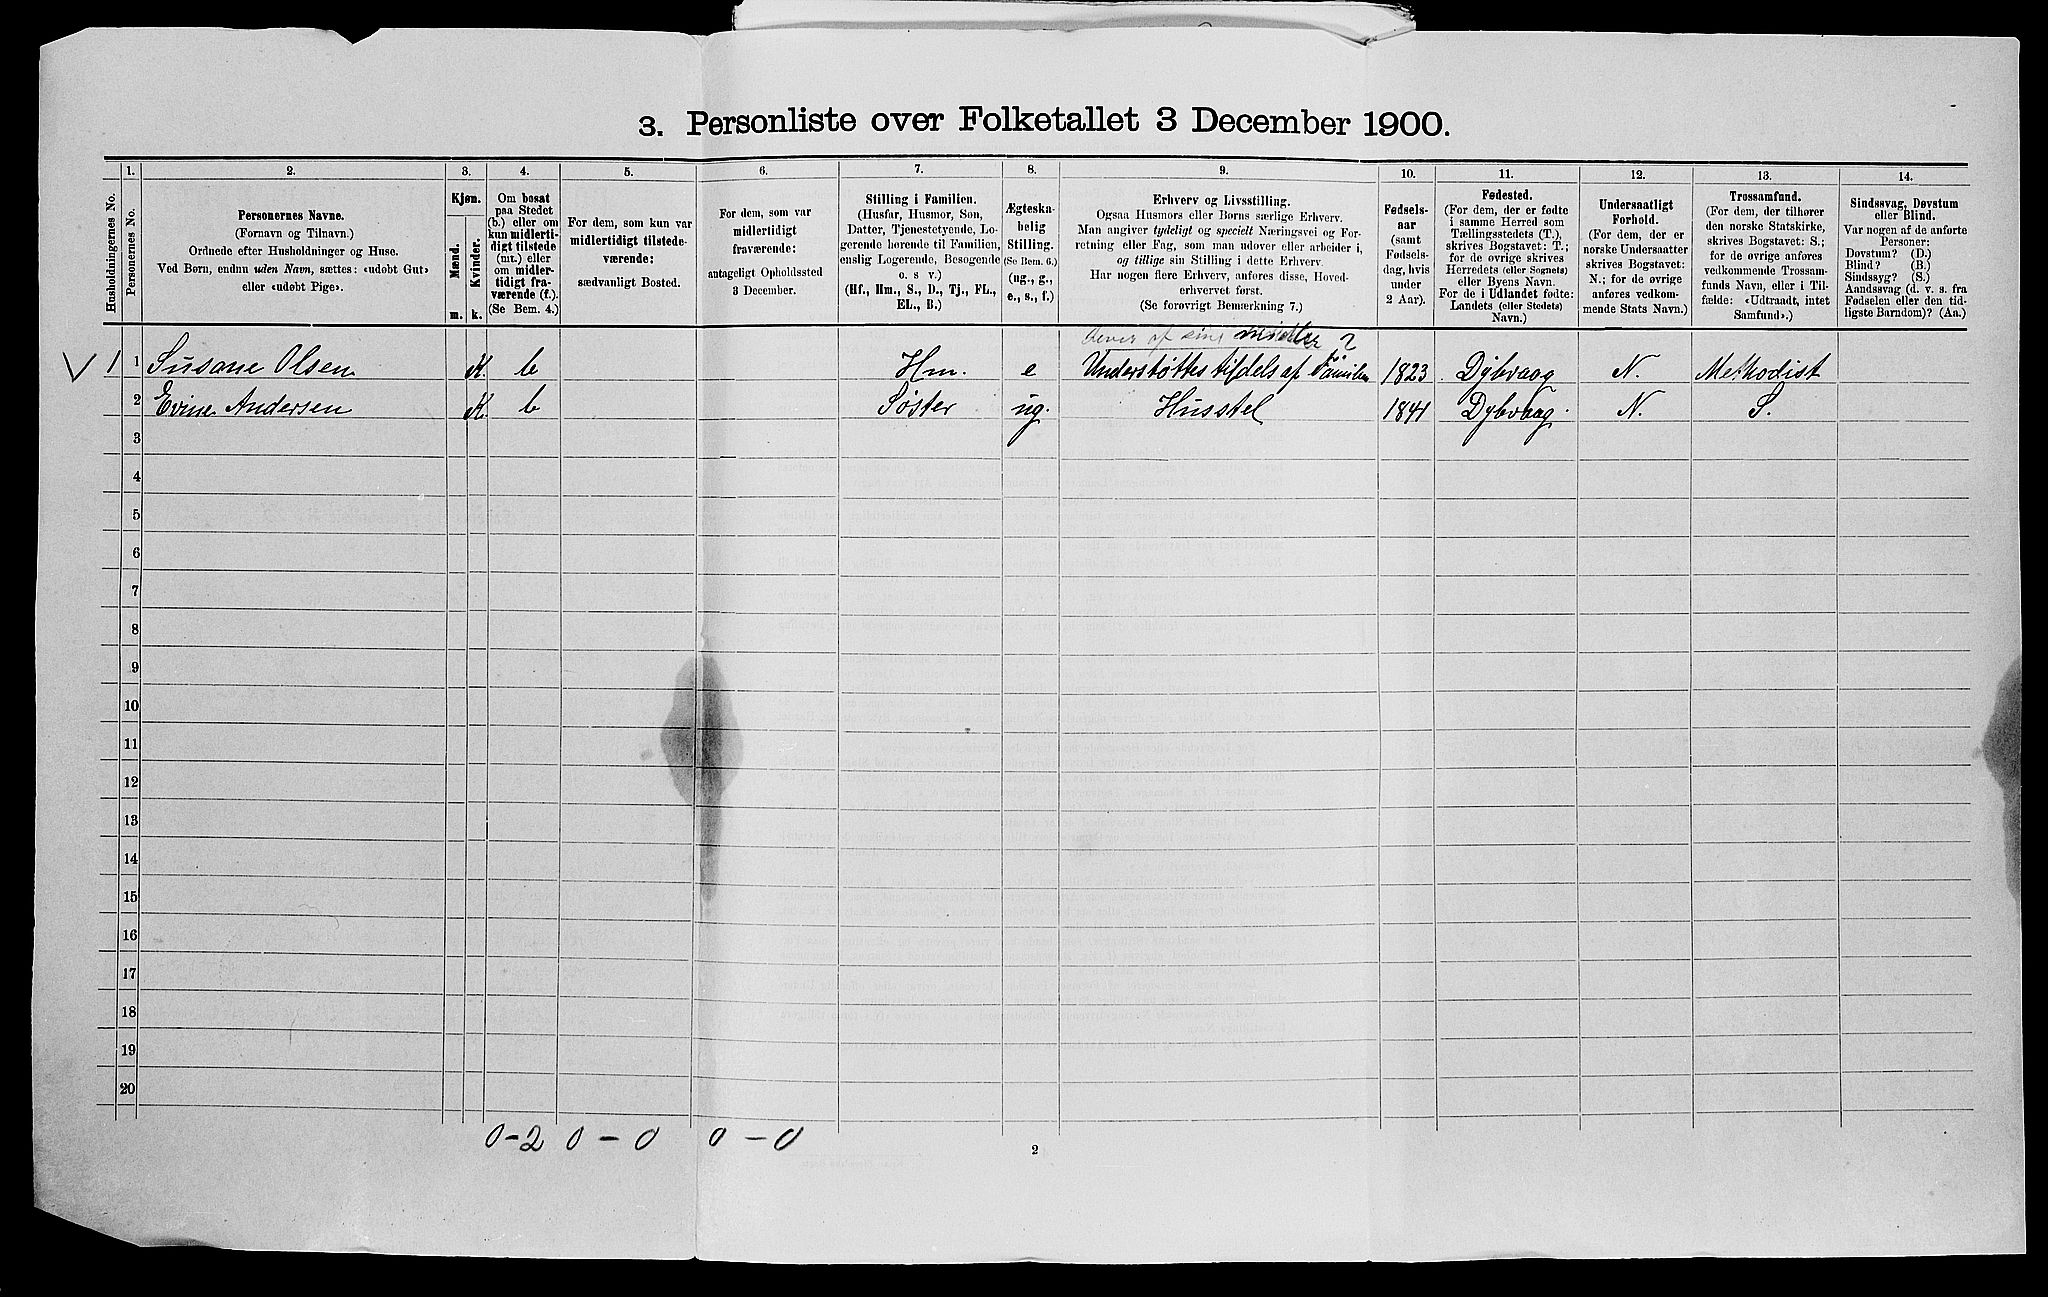 3. Personliste over Folketallet 3 December 1900.
1. 2. 3. 4. 5. 6. 7. 8. 9. 10. 11. 12. 13. 14.
Husholdningernes No.
Personernes No.
Personernes Navne.
(Fornavn og Tilnavn.)
Ordnede efter Husholdninger og Huse.
Ved Børn, endnu uden Navn, sættes: «udøbt Gut»
eller «udøbt Pige».
Kjøn.
Mænd.
Kvinder.
m. k.
Om bosat
paa Stedet
(b.) eller om
kun midlerti-
digt tilstede
(mt.) eller
om midler-
tidigt fra-
værende (f.).
(Se Bem. 4.)
For dem, som kun var
midlertidigt tilstede-
værende:
sædvanligt Bosted.
For dem, som var
midlertidigt
fraværende:
antageligt Opholdssted
3 December.
Stilling i Familien.
(Husfar, Husmor, Søn,
Datter, Tjenestetyende, Lo-
gerende hørende til Familien,
enslig Logerende, Besøgende
o. s v.)
(Hf., Hm., S., D., Tj., FL.,
EL., B.)
Ægteska-
belig
Stilling.
(Se Bem. 6.)
(ug., g.,
e., s., f.)
Erhverv og Livsstilling.
Ogsaa Husmors eller Børns særlige Erhverv.
Man angiver tydeligt og specielt Næringsvei og For-
retning eller Fag, som man udover eller arbeider i,
og tillige sin Stilling i dette Erhverv.
Har nogen flere Erhverv, anføres disse, Hoved-
erhvervet først.
(Se forøvrigt Bemærkning 7.)
Fødsels-
aar
(samt
Fødsels-
dag, hvis
under
2 Aar).
Fødested.
(For dem, der er fødte
i samme Herred som
Tællingsstedets (T.),
skrives Bogstavet: T.;
for de øvrige skrives
Herredets (eller Sognets)
eller Byens Navn.
For de i Udlandet fødte:
Landets (eller Stedets)
Navn.)
Undersaatligt
Forhold.
(For dem, der er
norske Undersaatter
skrives Bogstavet:
N.; for de øvrige
anføres vedkom-
mende Stats Navn.)
Trossamfund.
(For dem, der tilhører
den norske Statskirke,
skrives Bogstavet: S.;
for de øvrige anføres
vedkommende Trossam-
funds Navn, eller i Til-
fælde: «Udtraadt, intet
Samfund».)
Sindssvag, Døvstum
eller Blind.
Var nogen af de anførte
Personer:
Døvstum? (D.)
Blind? (B.)
Sindssyg? (S.)
Aandssvag (d. v. s. fra
Fødselen eller den tid-
ligste Barndom)? (Aa.)
lever af sine midler ?
1 1 Susane Olsen K. b Hm. e Understøttes tildels af Familien 1823 Dybvaag N. Methodist
2 Evine Andersen K. b Søster ug. Husstel 1841 Dybvaag. N. S.
3
4
5
6
7
8
9
10
11
12
13
14
15
16
17
18
19
20
0-2 0-0 0-0
2